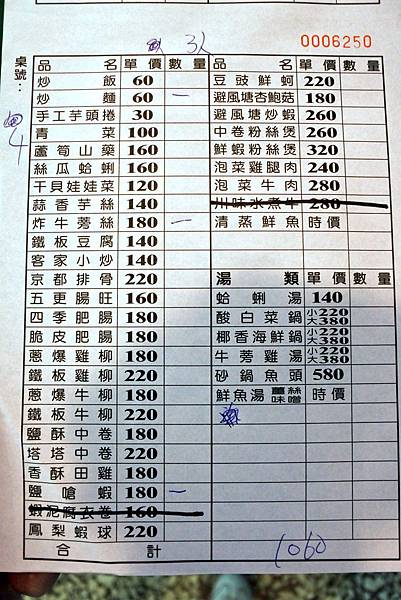 3人
0006250
桌號：
4
品名 單價 數量
炒飯 60
炒麵 60 一
手工芋頭捲 30
青菜 100
蘆筍山藥 160
絲瓜蛤蜊 160
干貝娃娃菜 120
蒜香芋絲 140
炸牛蒡絲 180 一
鐵板豆腐 140
客家小炒 140
京都排骨 220
五更腸旺 160
四季肥腸 180
脆皮肥腸 180
蔥爆雞柳 180
鐵板雞柳 220
蔥爆牛柳 180
鐵板牛柳 220
鹽酥中卷 180
塔塔中卷 220
香酥田雞 180
鹽嗆蝦 180 一
蝦泥腐衣卷 160
鳳梨蝦球 220
合計 1060
品名 單價 數量
豆豉鮮蚵 220
避風塘杏鮑菇 180
避風塘炒蝦 260
中卷粉絲煲 260
鮮蝦粉絲煲 320
泡菜雞腿肉 240
泡菜牛肉 280
川味水煮牛 280
清蒸鮮魚 時價
湯類 單價 數量
蛤蜊湯 140
酸白菜鍋 小220 大380
椰香海鮮鍋 小220 大380
牛蒡雞湯 小220 大380
砂鍋魚頭 580
鮮魚湯 薑絲 味噌 時價